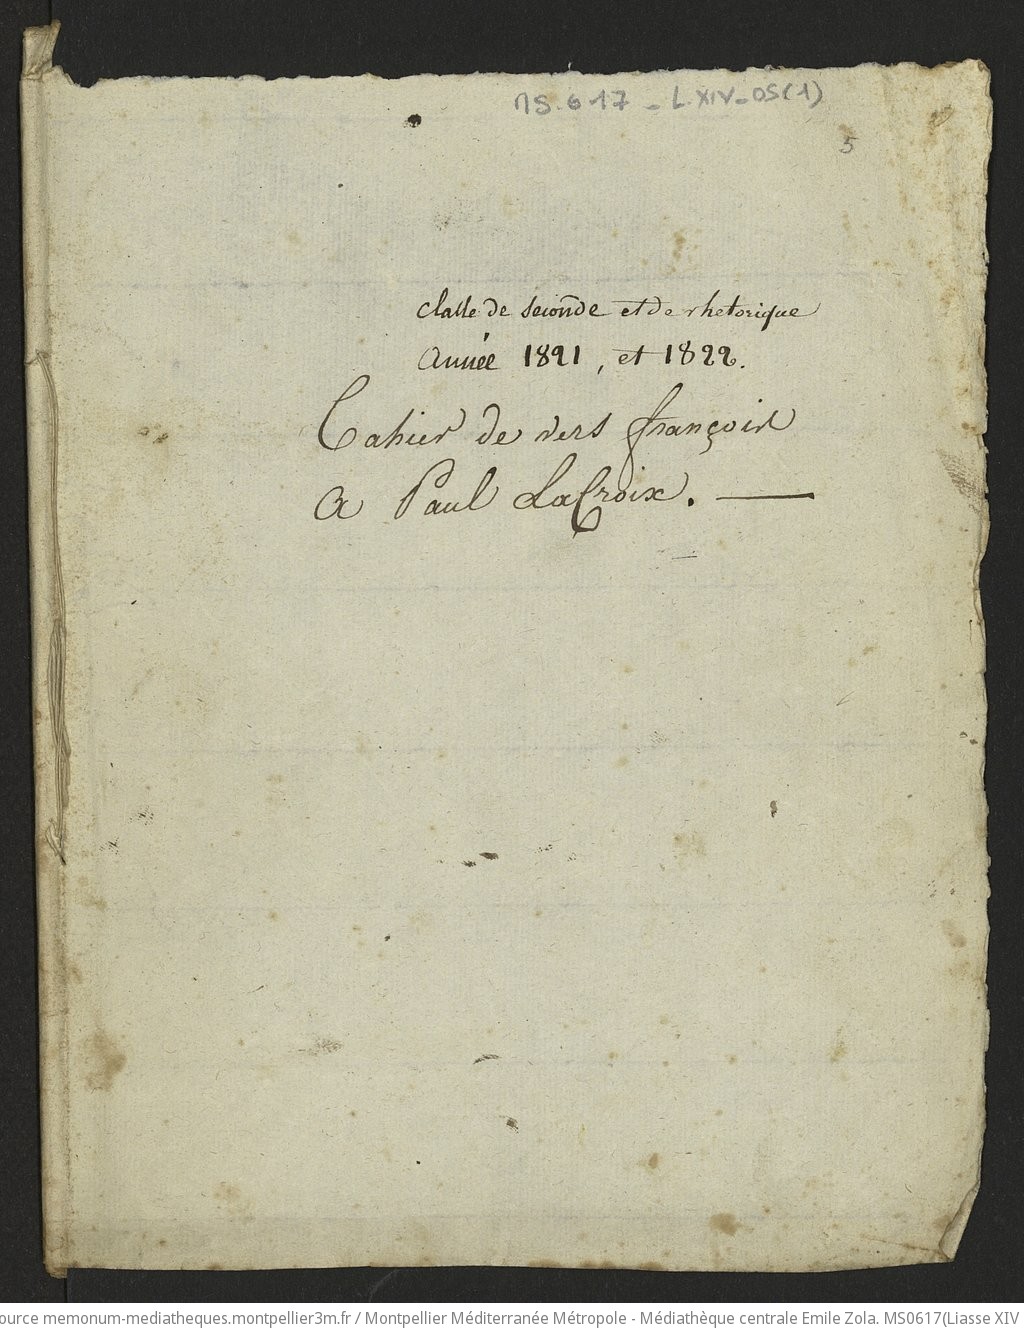 MS.617 - L.XIV-05(1)
5
Classe de seconde et de rhetorique
Année 1821, et 1822.
Cahier de vers françois
A Paul LaCroix.
ource memonum-mediatheques.montpellier3m.fr / Montpellier Méditerranée Métropole - Médiathèque centrale Emile Zola. MS0617(Liasse XIV